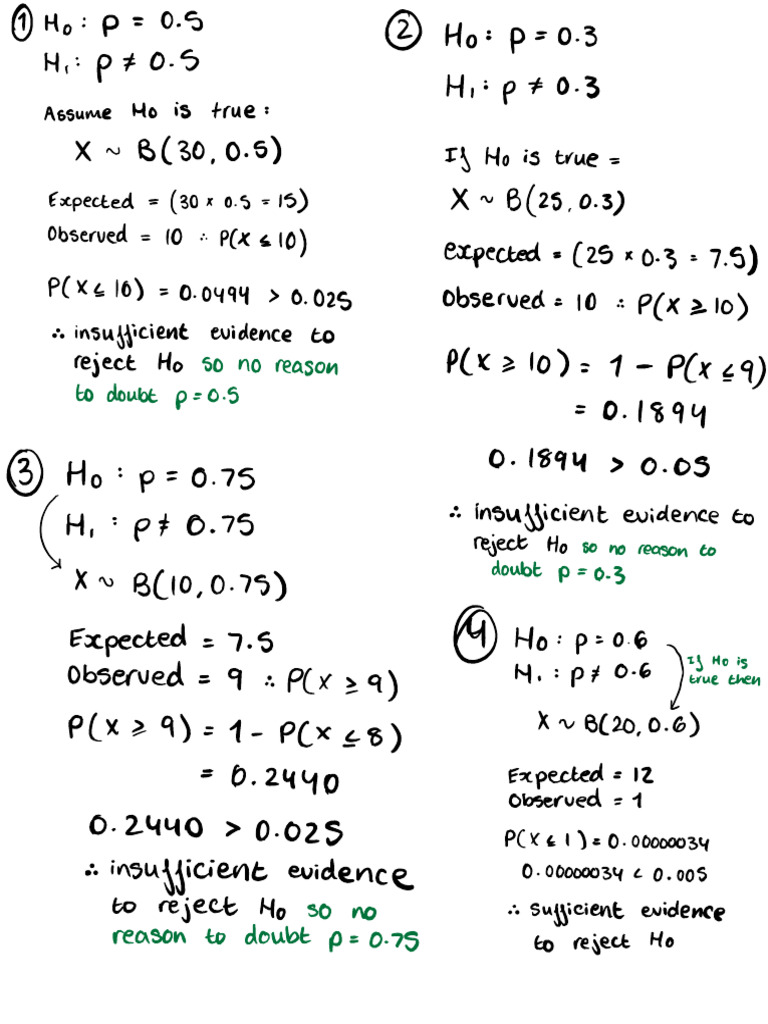 ① H₀ : p = 0.5
H₁ : p ≠ 0.5
Assume H₀ is true :
X ~ B(30, 0.5)
Expected = (30 × 0.5 = 15)
Observed = 10 ∴ P(X ≤ 10)
P(X ≤ 10) = 0.0494 > 0.025
∴ insufficient evidence to
reject H₀ so no reason
to doubt p = 0.5
② H₀ : p = 0.3
H₁ : p ≠ 0.3
If H₀ is true =
X ~ B(25, 0.3)
expected = (25 × 0.3 = 7.5)
Observed = 10 ∴ P(X ≥ 10)
P(X ≥ 10) = 1 - P(X ≤ 9)
= 0.1894
0.1894 > 0.05
∴ insufficient evidence to
reject H₀ so no reason to
doubt p = 0.3
③ H₀ : p = 0.75
H₁ : p ≠ 0.75
X ~ B(10, 0.75)
Expected = 7.5
Observed = 9 ∴ P(X ≥ 9)
P(X ≥ 9) = 1 - P(X ≤ 8)
= 0.2440
0.2440 > 0.025
∴ insufficient evidence
to reject H₀ so no
reason to doubt p = 0.75
④ H₀ : p = 0.6
H₁ : p ≠ 0.6
If H₀ is
true then
X ~ B(20, 0.6)
Expected = 12
Observed = 1
P(X ≤ 1) = 0.00000034
0.00000034 < 0.005
∴ sufficient evidence
to reject H₀